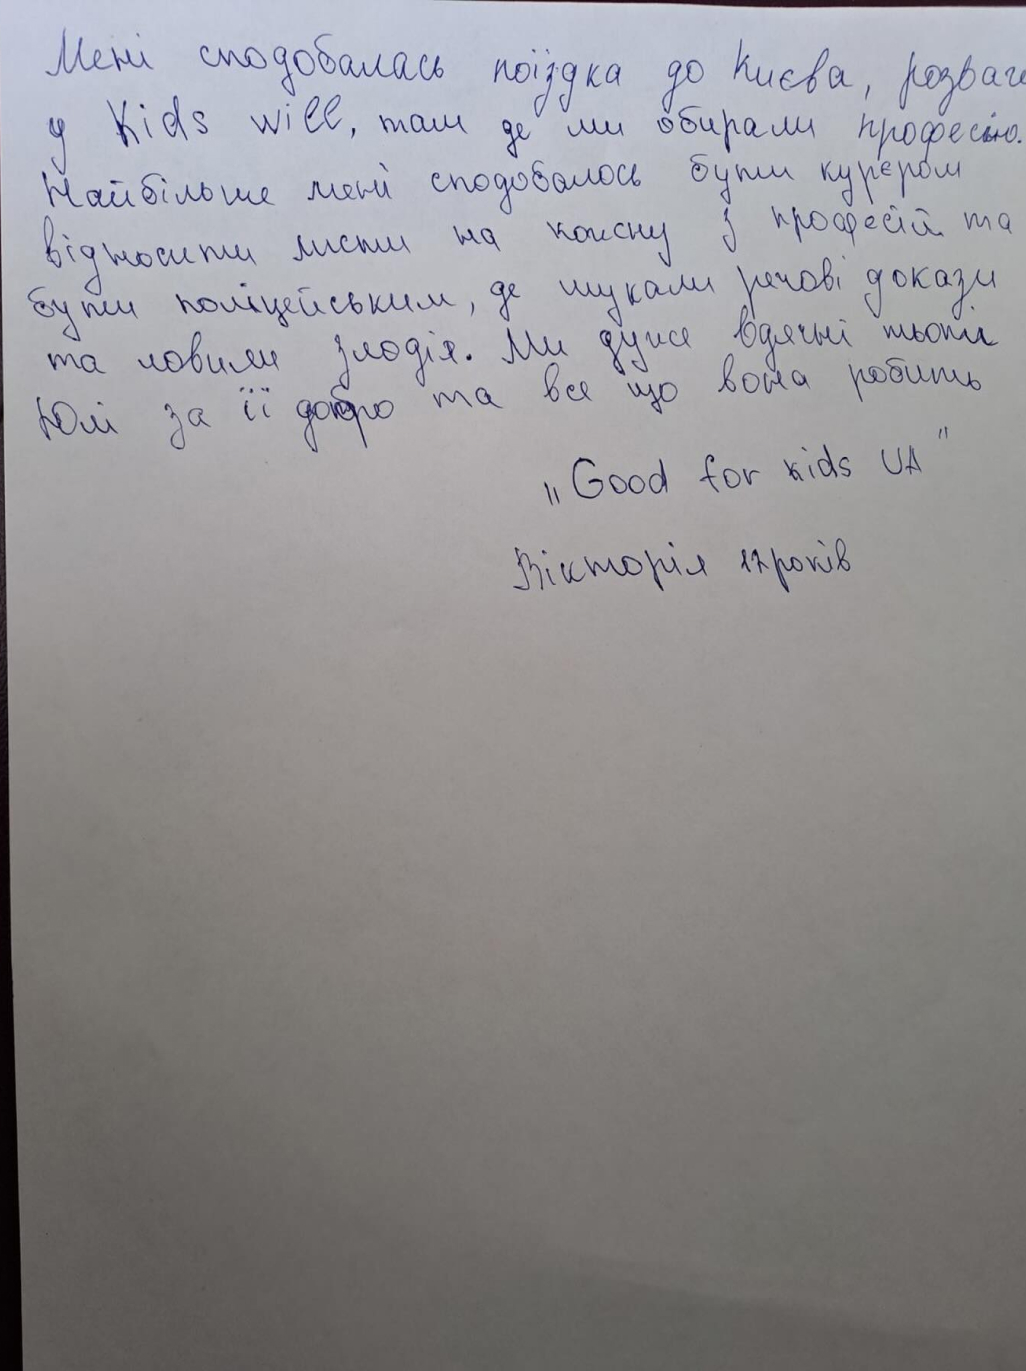 Мені сподобалась поїздка до Києва, розваги
у Kids will, там де ми обирали професію.
Найбільше мені сподобалось бути курєром
відносити листи на кожну з професій та
бути поліцейським, де шукали речові докази
та ловили злодія. Ми дуже вдячні тьоті
Юлі за її добро та все що вона робить
„Good for kids UA"
Вікторія 17 років